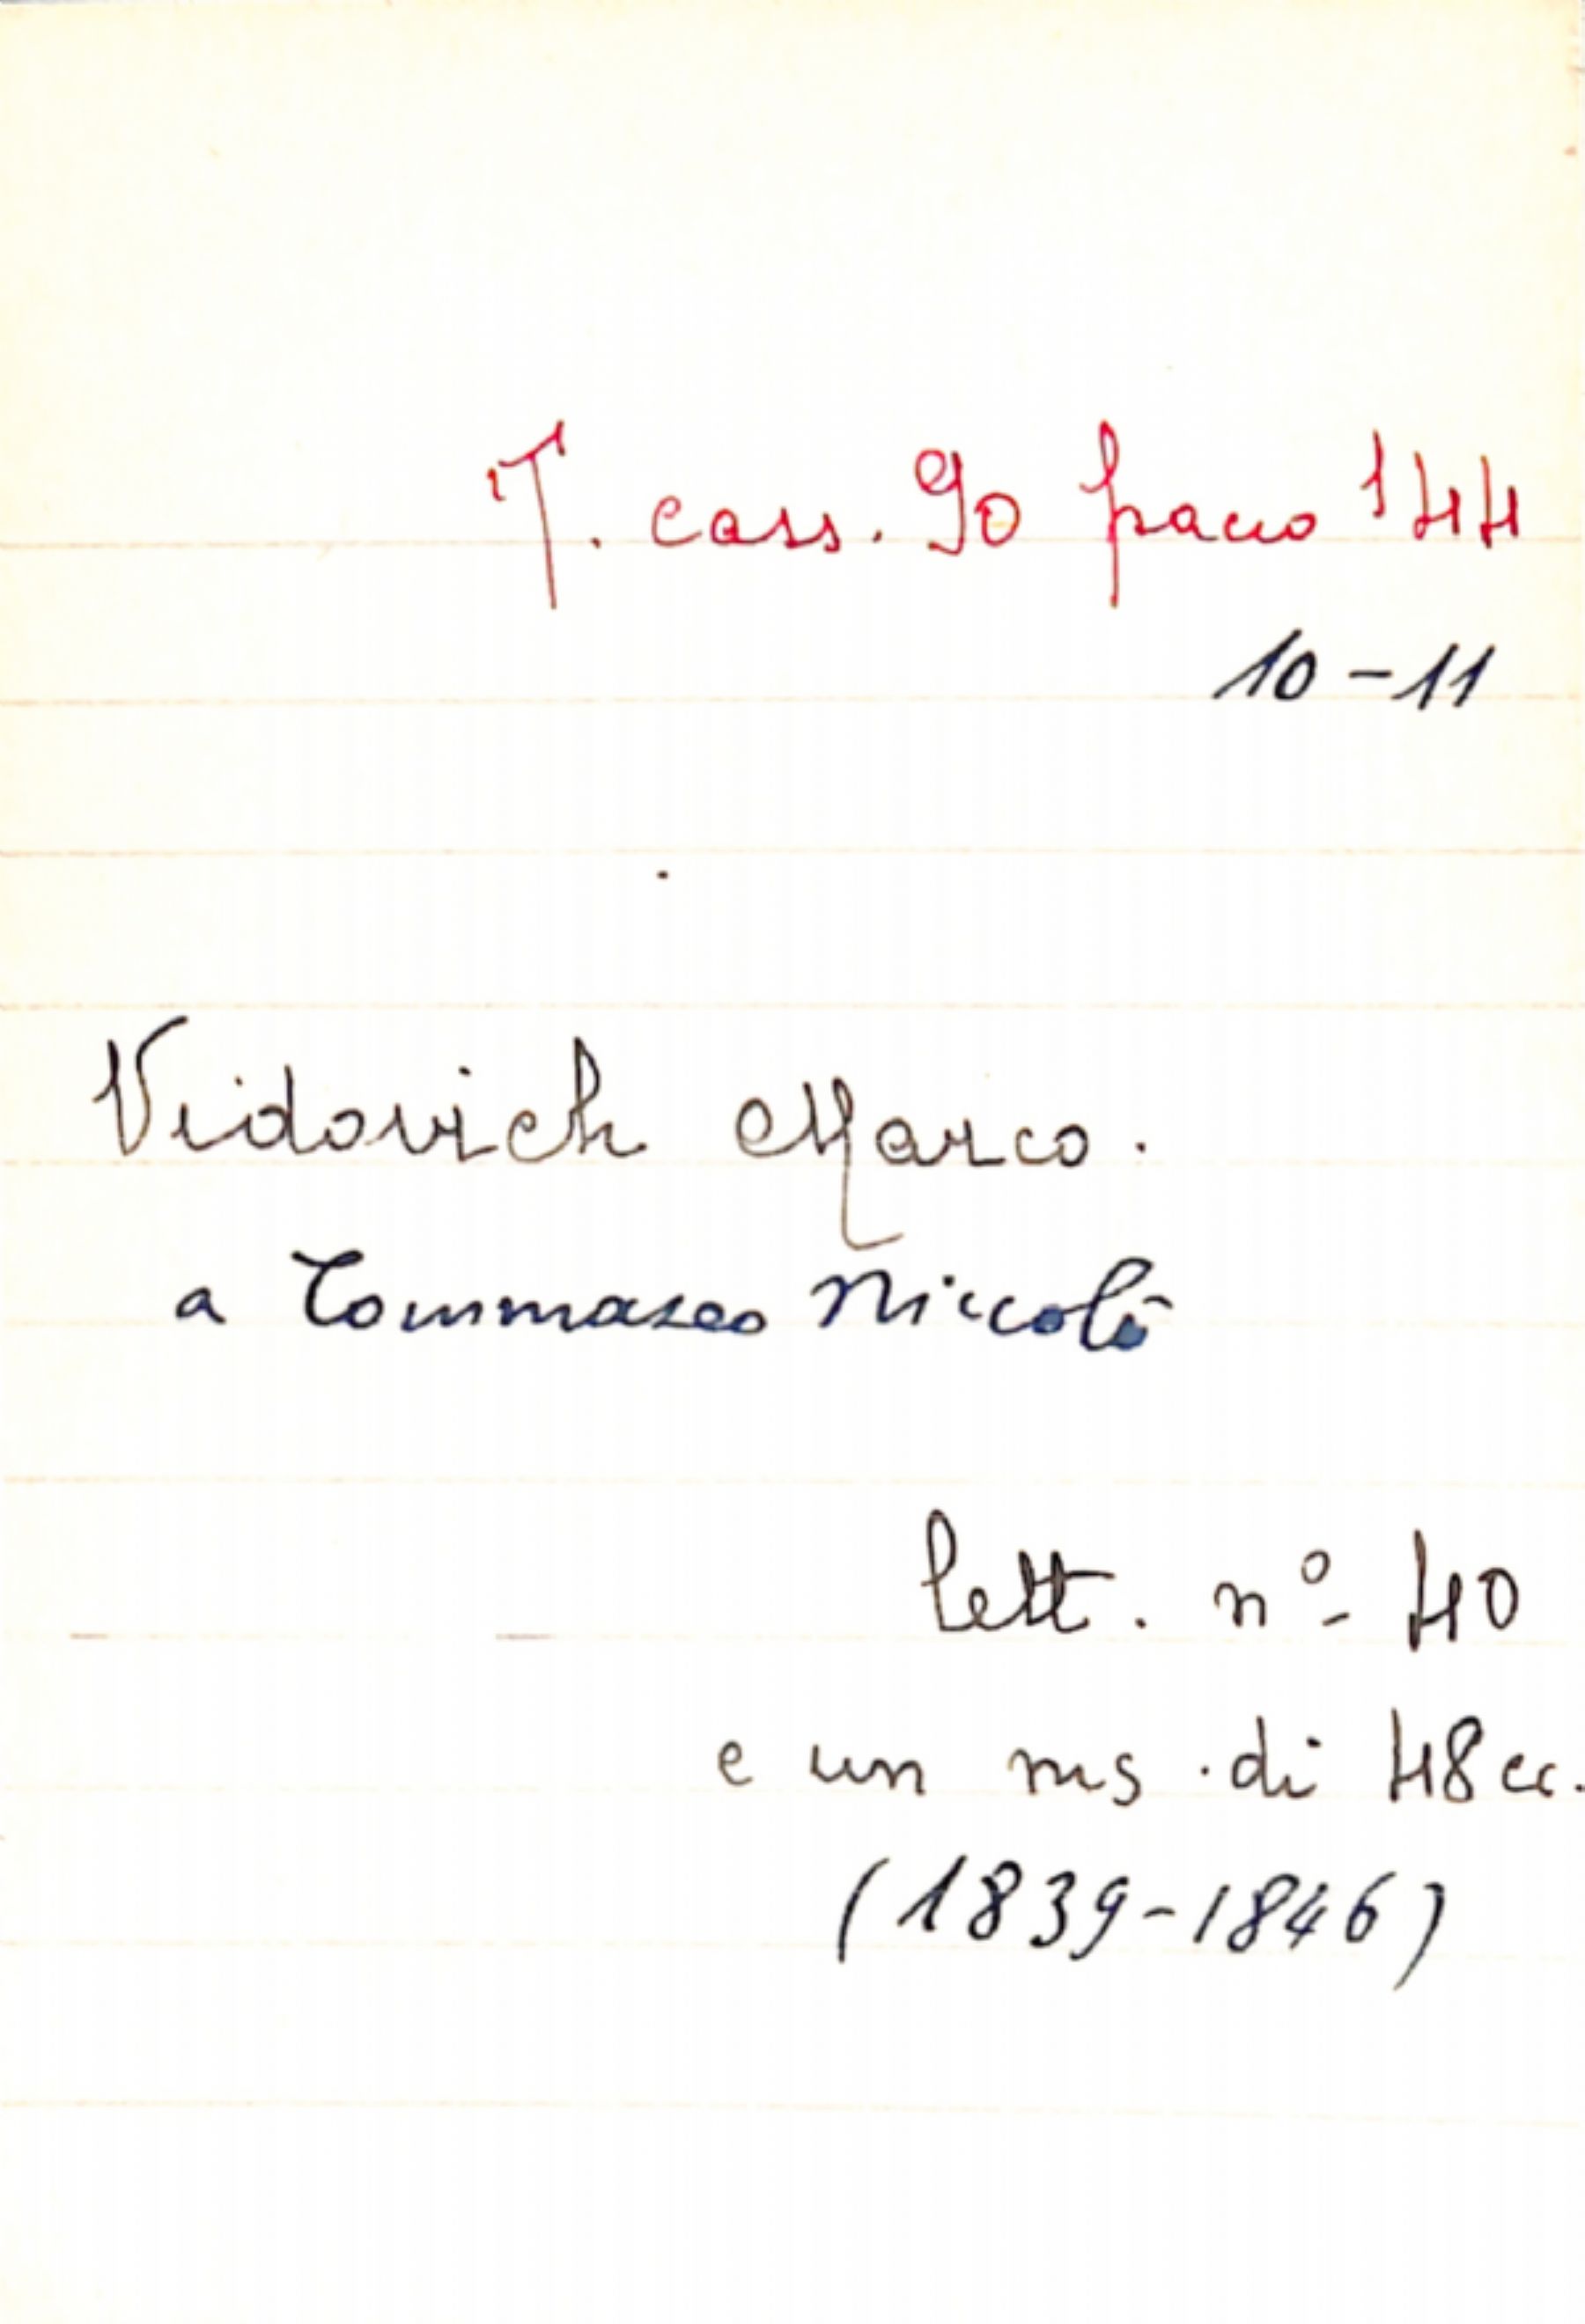 T. cass. 90 pacco 144
10-11
Vidovich Marco.
a Tommaseo Niccolò
lett. nº 40
e un ms. di 48 cc.
(1839-1846)